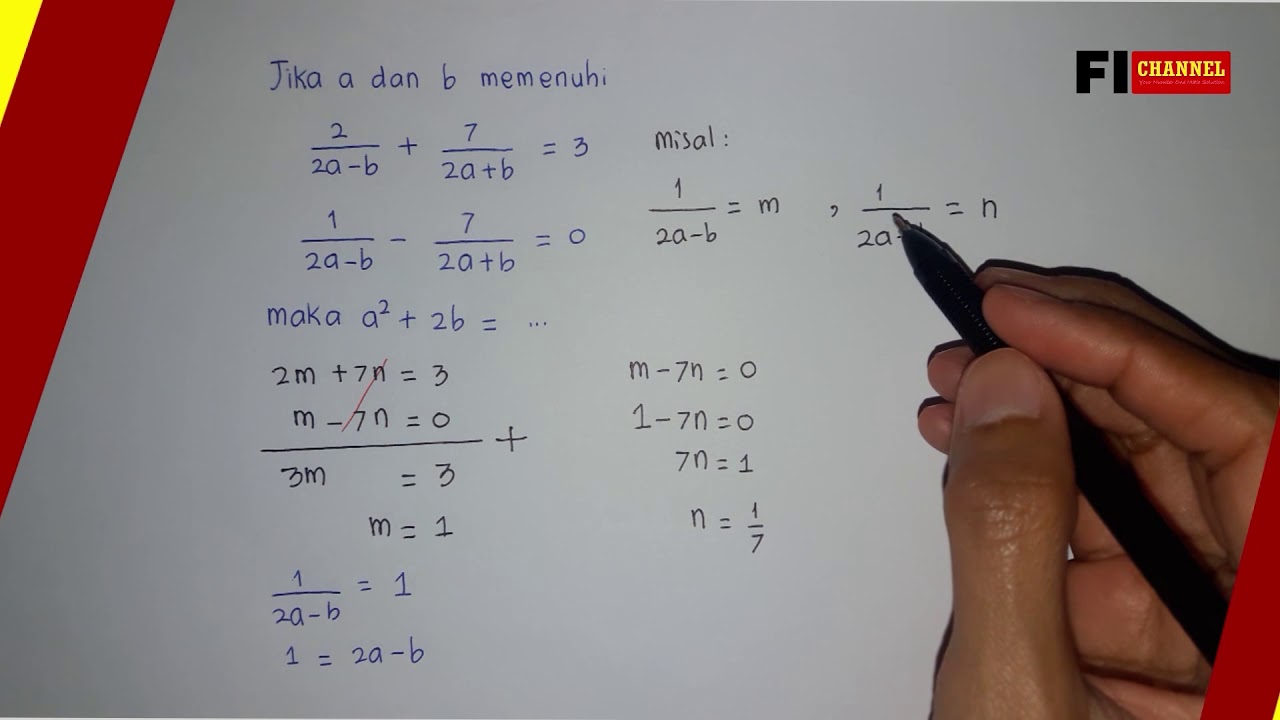 Jika a dan b memenuhi
2/(2a-b) + 7/(2a+b) = 3
1/(2a-b) - 7/(2a+b) = 0
maka a² + 2b = ...
2m + 7n = 3
m - 7n = 0
+
3m = 3
m = 1
1/(2a-b) = 1
1 = 2a-b
misal:
1/(2a-b) = m , 1/2a = n
m - 7n = 0
1 - 7n = 0
7n = 1
n = 1/7
FI CHANNEL
Your Number One Math Solution